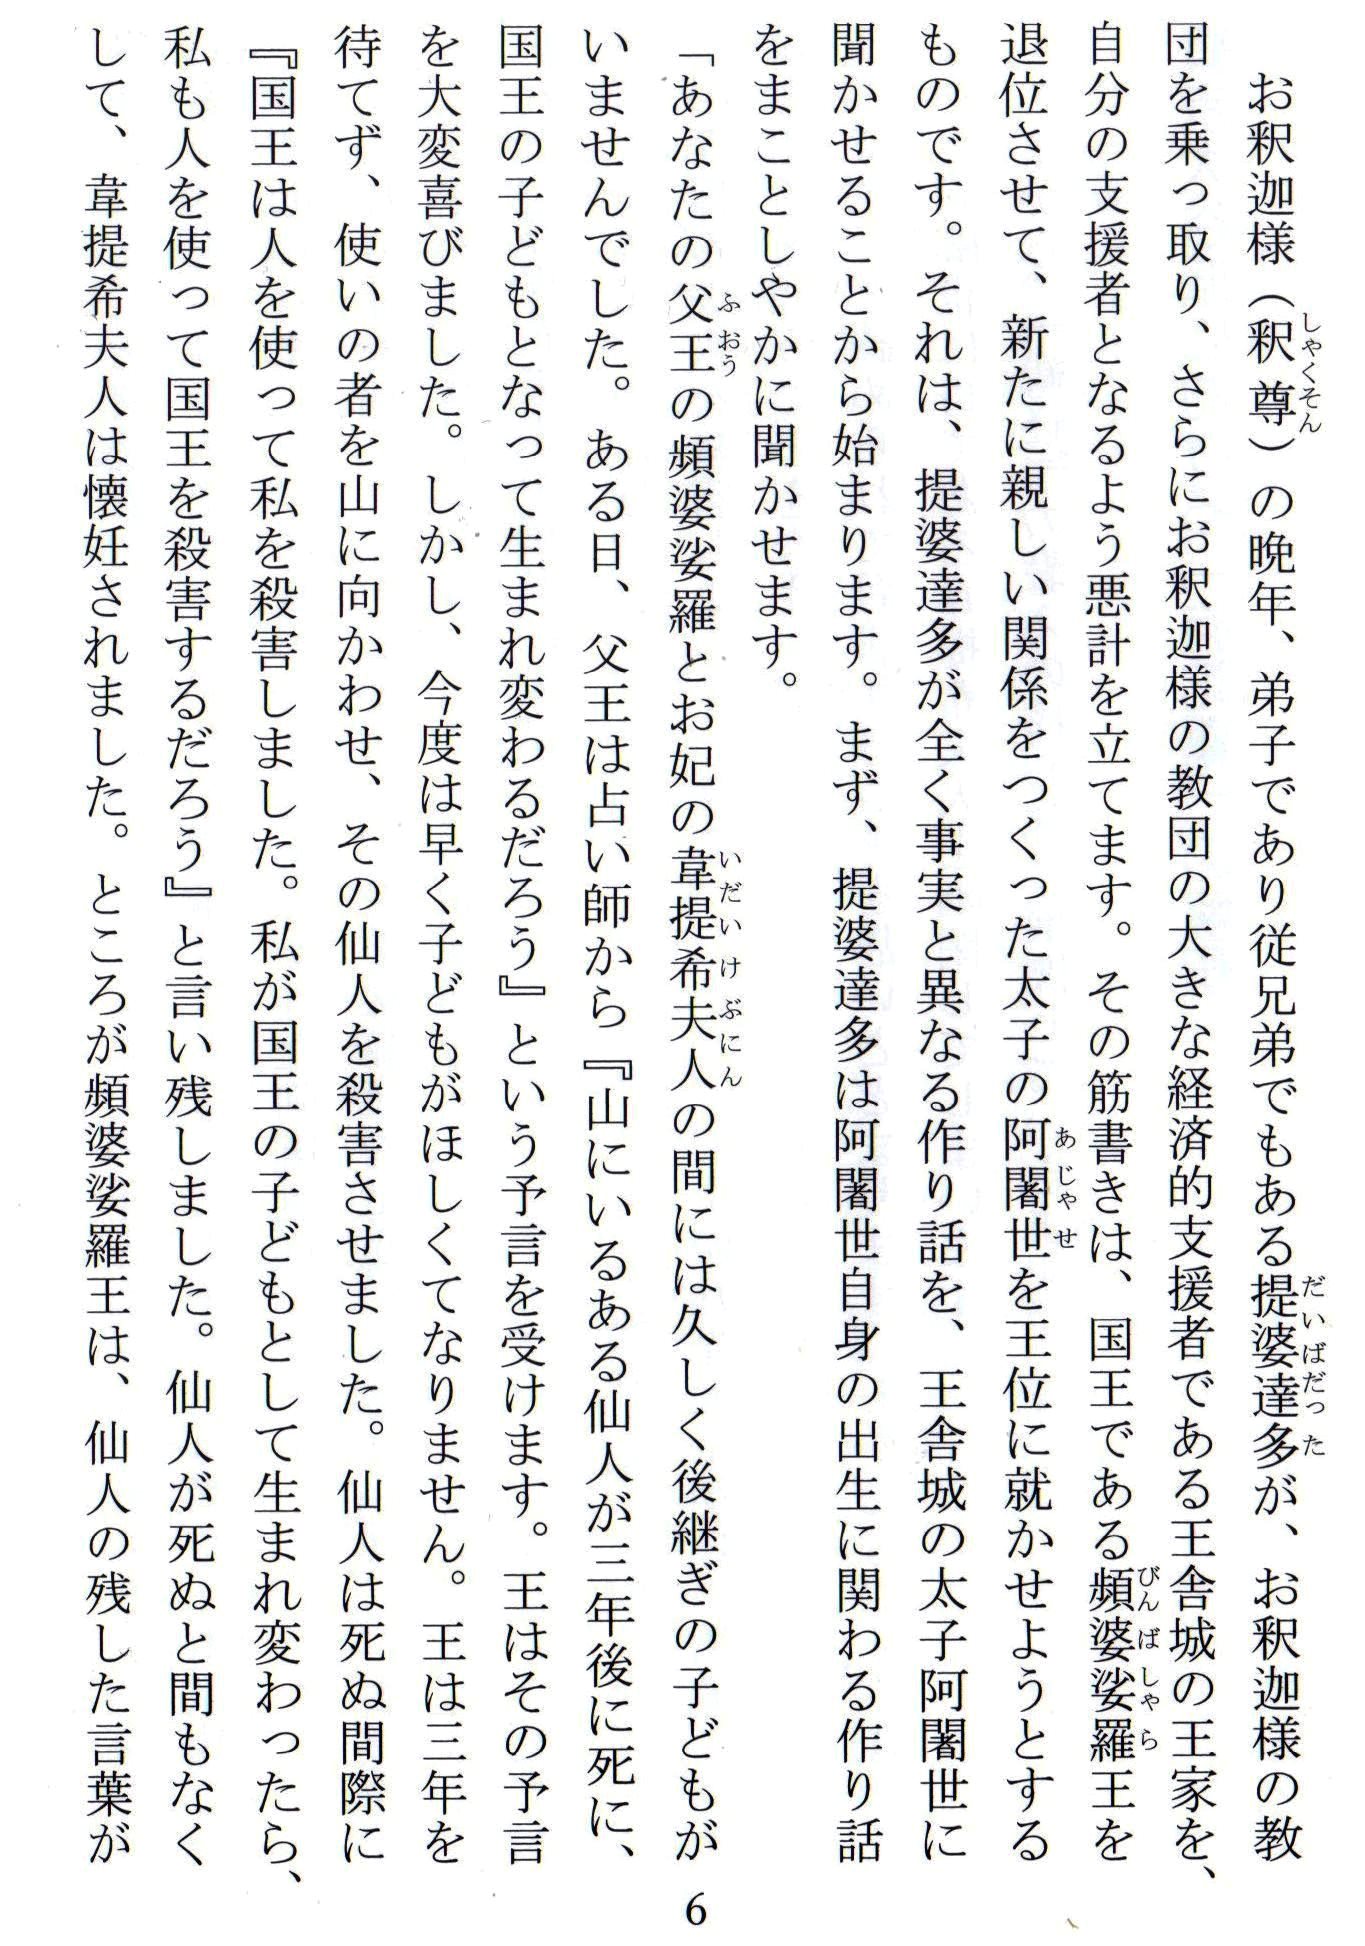 お釈迦様（釈尊）の晩年、弟子であり従兄弟でもある提婆達多が、お釈迦様の教
団を乗っ取り、さらにお釈迦様の教団の大きな経済的支援者である王舎城の王家を、
自分の支援者となるよう悪計を立てます。その筋書きは、国王である頻婆娑羅王を
退位させて、新たに親しい関係をつくった太子の阿闍世を王位に就かせようとする
ものです。それは、提婆達多が全く事実と異なる作り話を、王舎城の太子阿闍世に
聞かせることから始まります。まず、提婆達多は阿闍世自身の出生に関わる作り話
をまことしやかに聞かせます。
「あなたの父王の頻婆娑羅とお妃の韋提希夫人の間には久しく後継ぎの子どもが
いませんでした。ある日、父王は占い師から『山にいるある仙人が三年後に死に、
国王の子どもとなって生まれ変わるだろう』という予言を受けます。王はその予言
を大変喜びました。しかし、今度は早く子どもがほしくてなりません。王は三年を
待てず、使いの者を山に向かわせ、その仙人を殺害させました。仙人は死ぬ間際に
『国王は人を使って私を殺害しました。私が国王の子どもとして生まれ変わったら、
私も人を使って国王を殺害するだろう』と言い残しました。仙人が死ぬと間もなく
して、韋提希夫人は懐妊されました。ところが頻婆娑羅王は、仙人の残した言葉が
しゃくそん
だいばだった
びんばしゃら
あじゃせ
ふおう
いだいけぶにん
6